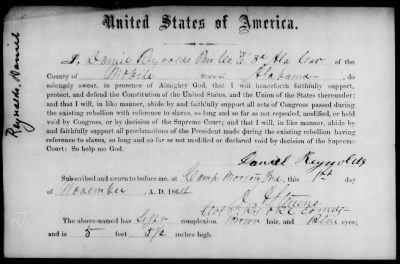 United States of America.
I, Daniel Reynolds Co. E. 3d Ala Cav of the
County of Mobile State of Alabama do
solemnly swear, in presence of Almighty God, that I will henceforth faithfully support,
protect, and defend the Constitution of the United States, and the Union of the States thereunder;
and that I will, in like manner, abide by and faithfully support all acts of Congress passed during
the existing rebellion with reference to slaves, so long and so far as not repealed, modified, or held
void by Congress, or by decision of the Supreme Court; and that I will, in like manner, abide by
and faithfully support all proclamations of the President made during the existing rebellion having
reference to slaves, so long and so far as not modified or declared void by decision of the Supreme
Court: So help me God.
Daniel Reynolds
Subscribed and sworn to before me, at Camp Morton, Ind. this 1st day
of November A. D. 1864
The above-named has complexion, Brown hair, and Blue eyes;
and is 5 feet 5 1/2 inches high.
Reynolds, Daniel